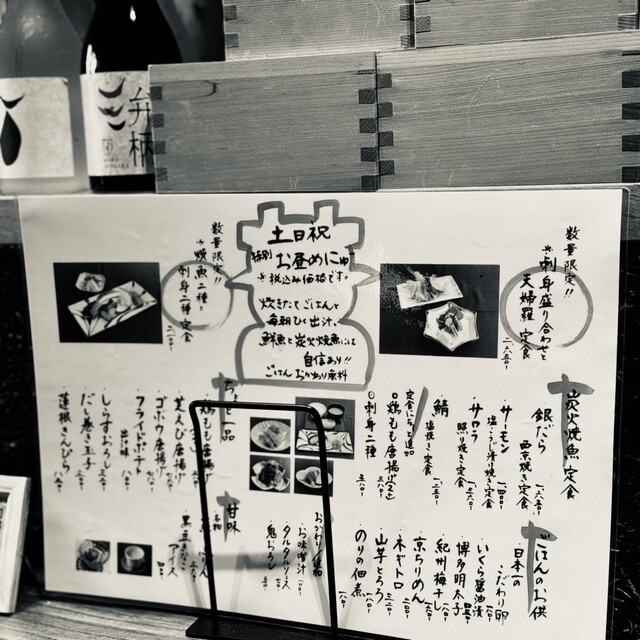 弁柄
土日祝
特別 お昼めにゅー
※税込み価格です。
炊きたてごはんと
毎朝ひく出汁。
鮮魚と炭火焼魚には
自信あり!!
ごはん おかわり無料
数量限定!!
※刺身盛り合わせと
天婦羅 定食
数量限定!!
※焼魚二種と
刺身二種 定食
炭火焼魚定食
・銀だら
西京焼き定食
・サーモン
・サワラ
照り焼き定食
・鯖
塩焼き定食
定食にちょと追加
○鶏もも唐揚げ
○刺身二種
ちょと一品
・鶏もも唐揚げ
・芝えび唐揚げ
・ゴボウ唐揚げ
・フライドポテト
・しらすおろし
・だし巻き玉子
・蓮根きんぴら
ごはんのお供
・日本一の
こだわり卵
・いくら醤油漬
・博多明太子
・紀州梅干し
・京ちりめん
・ネギトロ
・山芋とろろ
・のりの佃煮
・お味噌汁
・タルタルソース
・鬼おろし
甘味
アイス